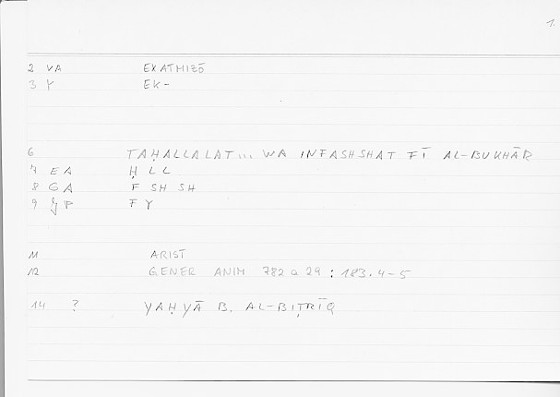 1.
2 VA EXATMIZŌ
3 Y EK-
6 TAḤALLALAT... WA INFASHSHAT FĪ AL-BUKHĀR
7 EA ḤLL
8 GA F SH SH
9 FY
11 ARIST
12 GENER ANIM 782 a 29 : 183.4-5
14 ? YAḤYĀ B. AL-BIṬRĪQ